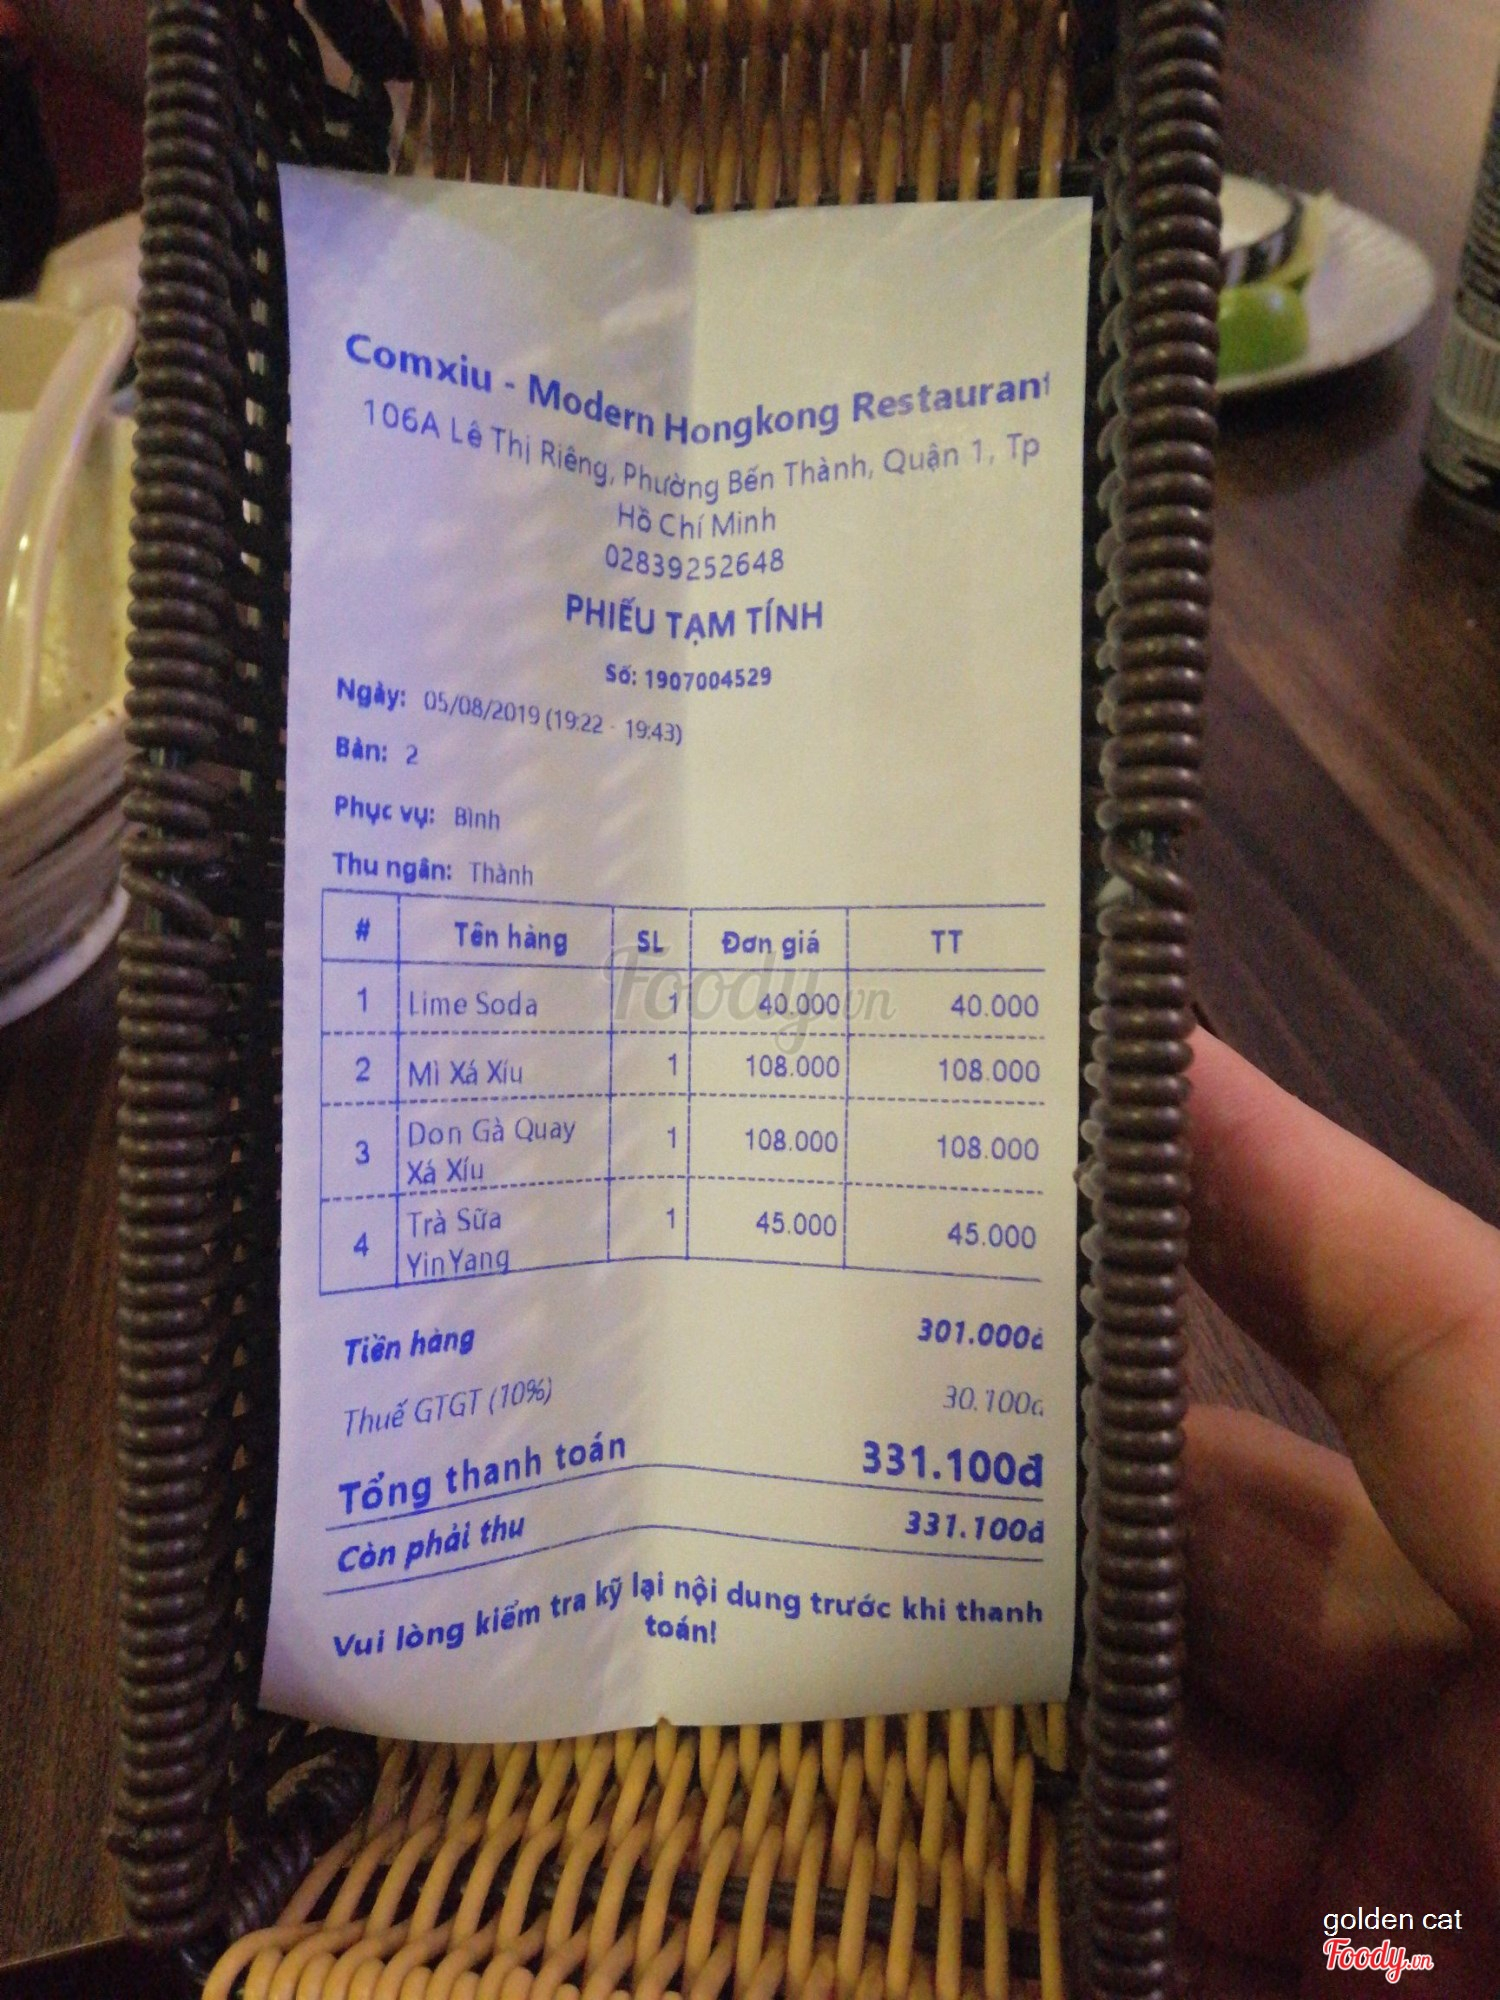 Comxiu - Modern Hongkong Restaurant
106A Lê Thị Riêng, Phường Bến Thành, Quận 1, Tp
Hồ Chí Minh
02839252648
PHIẾU TẠM TÍNH
Số: 1907004529
Ngày: 05/08/2019 (19:22 - 19:43)
Bàn: 2
Phục vụ: Bình
Thu ngân: Thành
# Tên hàng SL Đơn giá TT
1 Lime Soda 1 40.000 40.000
2 Mì Xá Xíu 1 108.000 108.000
3 Don Gà Quay Xá Xíu 1 108.000 108.000
4 Trà Sữa YinYang 1 45.000 45.000
Tiền hàng 301.000đ
Thuế GTGT (10%) 30.100đ
Tổng thanh toán 331.100đ
Còn phải thu 331.100đ
Vui lòng kiểm tra kỹ lại nội dung trước khi thanh
toán!
Foody.vn
golden cat
Foody.vn